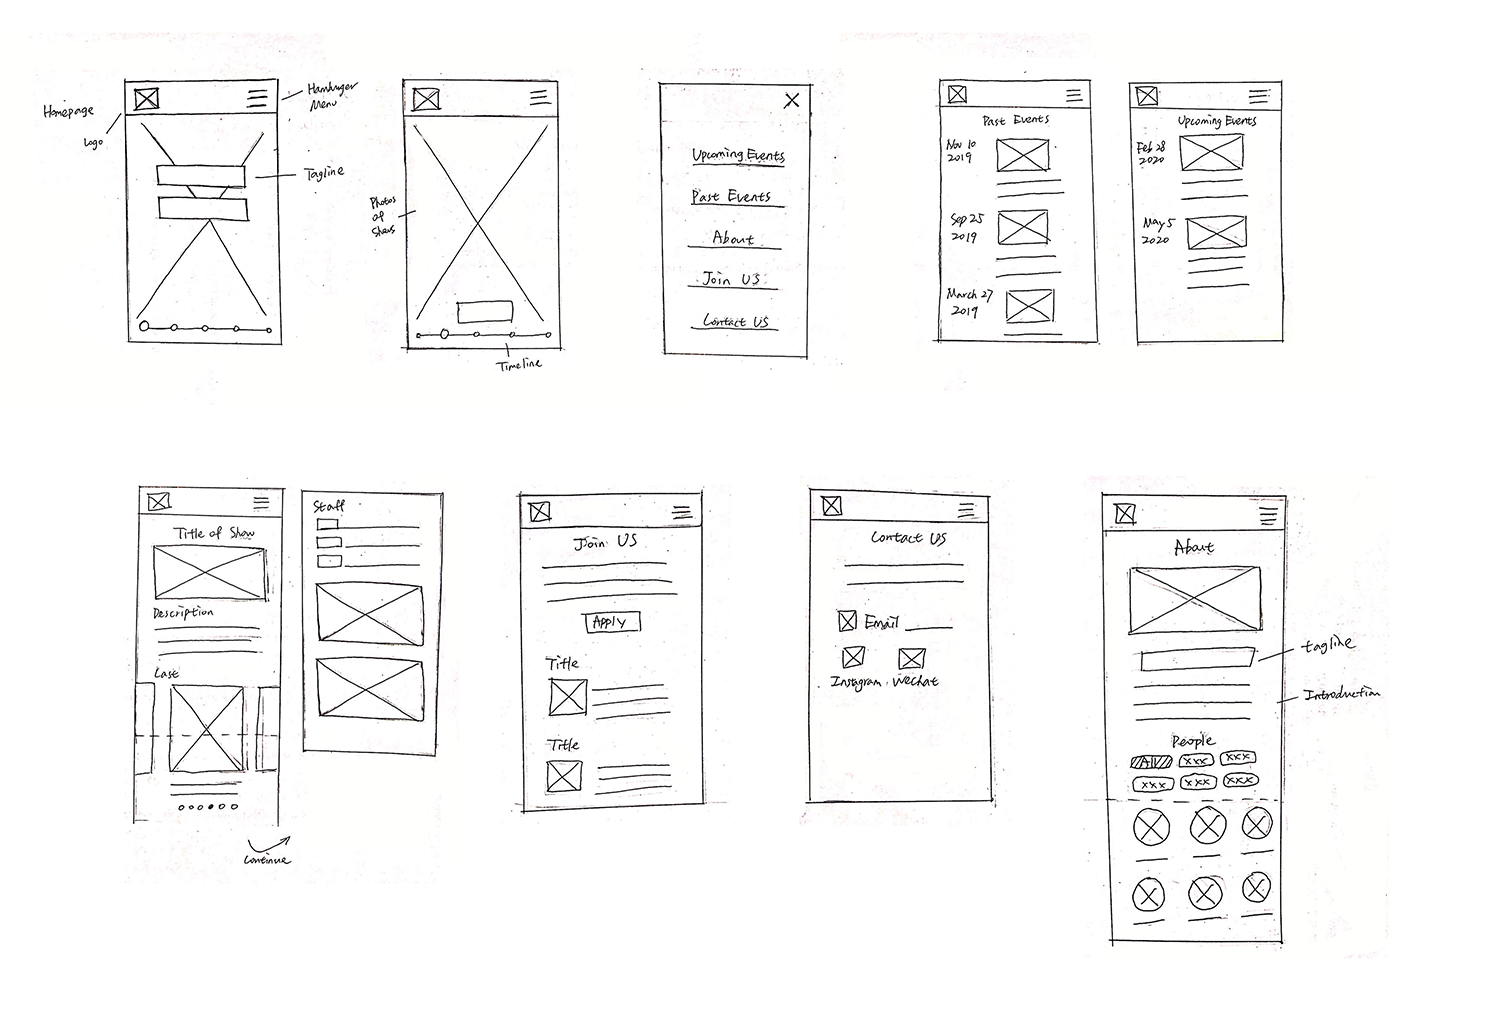 Homepage
Logo
Hamburger
Menu
Tagline
Photos
of
Shows
Timeline
Upcoming Events
Past Events
About
Join US
Contact US
Past Events
Nov 10
2019
Sep 25
2019
March 27
2019
Upcoming Events
Feb 28
2020
May 5
2020
Title of Show
Description
Last
Continue
Staff
Join US
Apply
Title
Title
Contact US
Email
Instagram. Wechat
About
tagline
Introduction
People
All xxx xxx
xxx xxx xxx